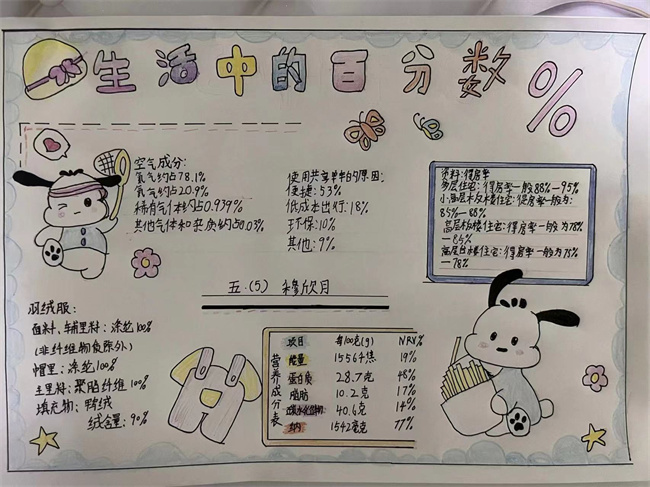 生活中的百分数%
空气成分:
氮气约占78.1%
氧气约占20.9%
稀有气体约占0.939%
其他气体和杂质约占0.03%
使用共享单车的原因:
便捷:53%
低成本出行:18%
环保:10%
其他:9%
资料:得房率
多层住宅:得房率一般88%—95%
小高层板楼住宅:得房率一般为:
85%—88%
高层板楼住宅:得房率一般为78%
—85%
高层台楼住宅:得房率一般为75%
—78%
五.(5) 穆欣月
羽绒服:
面料、辅里料:涤纶100%
(非纤维物质除分)
帽里:涤纶100%
主里料:聚脂纤维100%
填充物:鸭绒
绒含量:90%
营养成分表
项目 每100克(g) NRV%
能量 1556千焦 19%
蛋白质 28.7克 48%
脂肪 10.2克 17%
碳水化合物 40.6克 14%
钠 1542毫克 77%